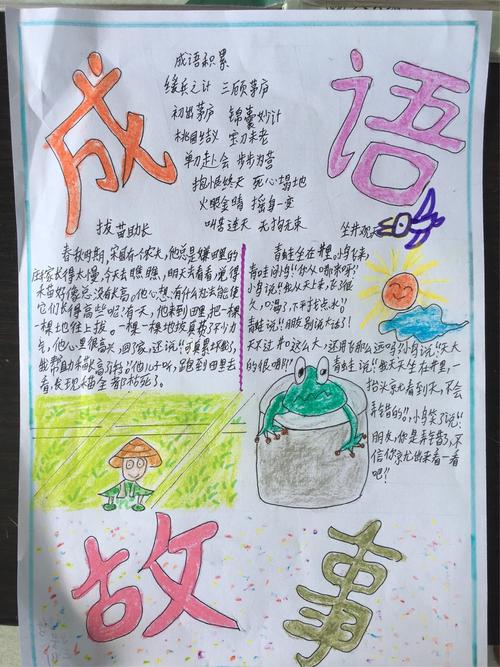 成语
成语积累
缓兵之计 三顾茅庐
初出茅庐 锦囊妙计
桃园结义 宝刀未老
单刀赴会 步步为营
抱恨终天 死心塌地
火眼金睛 摇身一变
叫苦连天 无拘无束
拔苗助长
春秋时期,宋国有个农夫,他总是嫌田里的
庄家长得太慢,今天去瞧瞧,明天去看看,觉得
禾苗好像总没有长高。他心想:有什么办法能使
它们长得高些呢?有一天,他来到田里,把一棵
一棵地往上拔。一棵一棵地拔真费了不少力
气,他心里很高兴,回家,还说:“可真累坏我了,
我帮助禾苗长高了
他儿子听,跑到田里去
看,发现禾苗全都枯死了。
坐井观天
青蛙坐在井里。小鸟飞来,
青蛙问小鸟:“你从哪来呀?”
小鸟说:“我从天上来,飞了很
久,口渴了,下来找点水。”
青蛙说:“朋友,别说大话了!
天不过井口这么大,还用飞那么远吗?”小鸟说:“天大
的很哪!”
青蛙说:“我天天坐在井里,一
抬头就看到天,不会
弄错的。”小鸟笑了说:“
朋友,你是弄错了,不
信你就出来看一看
吧!”
故事